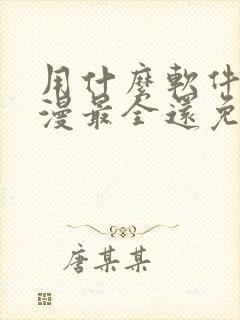 用什麼軟件
漫最全還免
唐某某